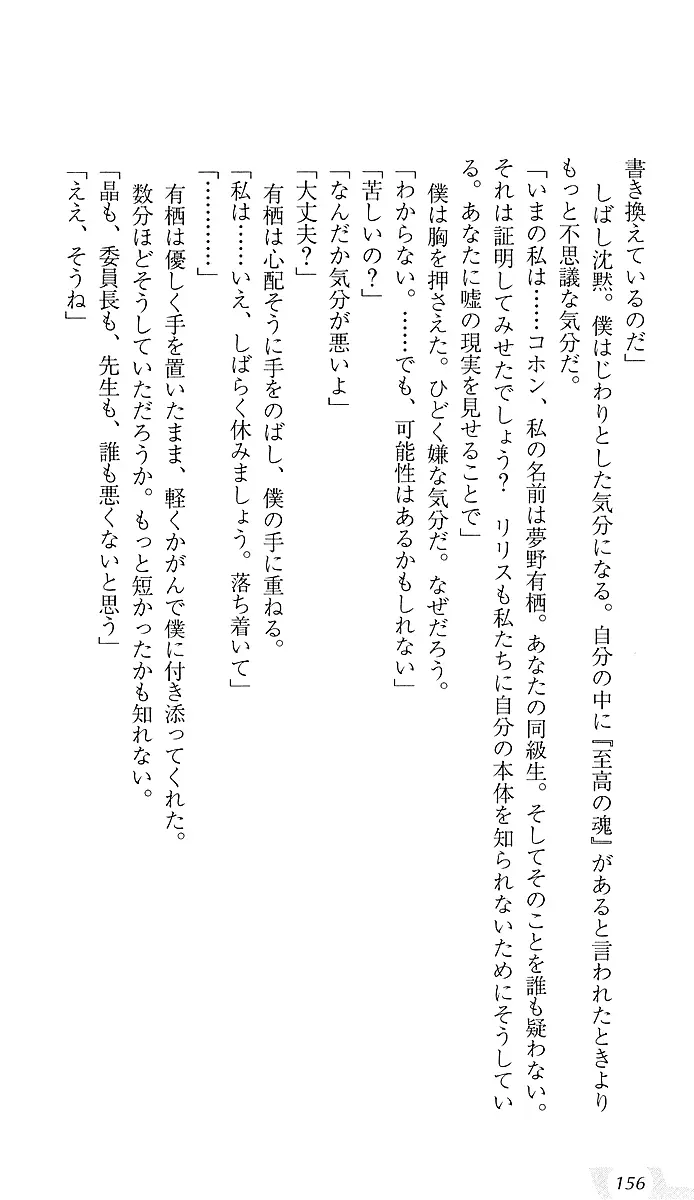 書き換えているのだ」
　しばし沈黙。僕はじわりとした気分になる。自分の中に『至高の魂』があると言われたときより
もっと不思議な気分だ。
「いまの私は……コホン、私の名前は夢野有栖。あなたの同級生。そしてそのことを誰も疑わない。
それは証明してみせたでしょう？　リリスも私たちに自分の本体を知られないためにそうしてい
る。あなたに嘘の現実を見せることで」
　僕は胸を押さえた。ひどく嫌な気分だ。なぜだろう。
「わからない。……でも、可能性はあるかもしれない」
「苦しいの？」
「なんだか気分が悪いよ」
「大丈夫？」
　有栖は心配そうに手をのばし、僕の手に重ねる。
「私は……いえ、しばらく休みましょう。落ち着いて」
「…………」
　有栖は優しく手を置いたまま、軽くかがんで僕に付き添ってくれた。
　数分ほどそうしていただろうか。もっと短かったかも知れない。
「晶も、委員長も、先生も、誰も悪くないと思う」
「ええ、そうね」
156